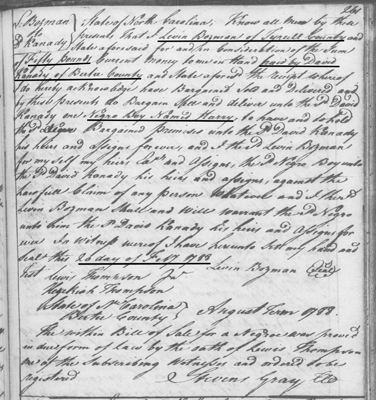 L. Bozman State of North Carolina, Know all men by these
to
D. Kanady presents that I Levin Bozman of Tyrrell County and
State aforesaid for and in Consideration of the Sum
of Fifty Pounds Current Money to me in Hand paid by David
Kanady of Bertie County and State afored. the receipt whereof
do hereby acknowledge have Bargained Sold and Delivered and
by these presents do Bargain Sell and deliver unto the sd. David
Kanady one Negro Boy Named Harry, to have and to hold
the sd. Negro Bargained premises unto the sd. David Kanady
his heirs and assigns for ever, and I the sd. Levin Bozman
for my self my heirs and Assigns, the sd. Negro Boy unto
the sd. David Kanady his heirs and assigns, against the
lawfull Claim of any person Whatever and I the sd.
Levin Bozman Shall and Will warrant the sd. Negro
unto him the sd. David Kanady his heirs and Assigns for
ever In Witness whereof I have hereunto Set my hand and
seal this 26 day of Feby. 1788
Levin Bozman Seal
Test Lewis Thompson Jr.
Hezekiah Thompson
State of No. Carolina
Bertie County August Term 1788.
The within Bill of Sale for a Negroe was proved
in due form of law by the oath of Lewis Thompson
one of the Subscribing Witnesses and ordered to be
registered
Stevens Gray CC